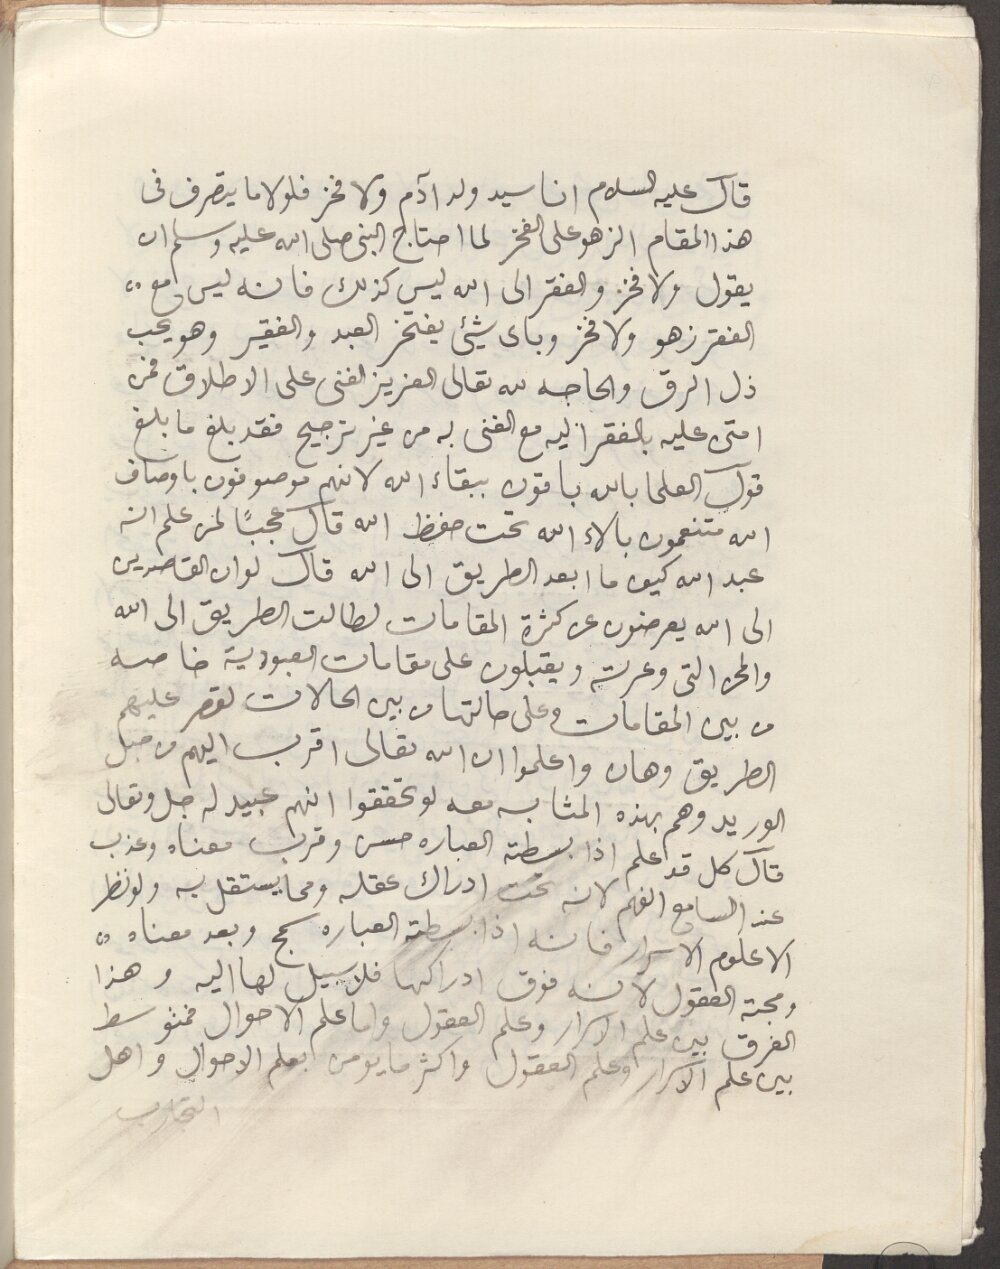 قال عليه السلام انا سيد ولد ادم ولا فخر فلولا ما يتصرف فى
هذا المقام الزهو على الفخر لما احتاج النبى صلى الله عليه وسلم ان
يقول ولا فخر والفقر الى الله ليس كذلك فانه ليس مع
الفقر زهو ولا فخر وباى شيئ يفتخر العبد والفقير وهو يحب
ذل الرق والحاجه لله تعالى العزيز الغنى على الاطلاق فمن
امتى عليه بالفقر اليه مع الغنى به من غير ترجيح فقد بلغ ما بلغ
قول العلما بالله باقون ببقاء الله لانهم موصوفون باوصاف
الله متنعمون بالاء الله تحت حفظ الله قال عجبًا لمن علم انه
عبد الله كيف ما ابعد الطريق الى الله قال لو ان القاصدين
الى الله يعرضون عن كثرة المقامات لطالت الطريق الى الله
والمحن التى وعرته ويقبلون على مقامات العبودية خاصه
من بين المقامات وعلى حالتها من بين الحالات لقصر عليهم
الطريق وهان واعلموا ان الله تعالى اقرب اليهم من حبل
الوريد وهم بهذه المثابه معه لو تحققوا انهم عبيد له جل وتعالى
قال كل قد علم اذا بسطته العباره حسن وقرب معناه وعذب
عند السامع الفهم لانه تحت ادراك عقله ومما يستقل به ولو نظر
الا علوم الاسرار فانه اذا بسطته العباره سمج وبعد معناه
ومجته العقول لانه فوق ادراكها فلا سبيل لها اليه وهذا
الفرق بين علم الاسرار وعلم العقول واما علم الاحوال فمتوسط
بين علم الاسرار وعلم العقول واكثر ما يومن بعلم الاحوال واهل
التجارب